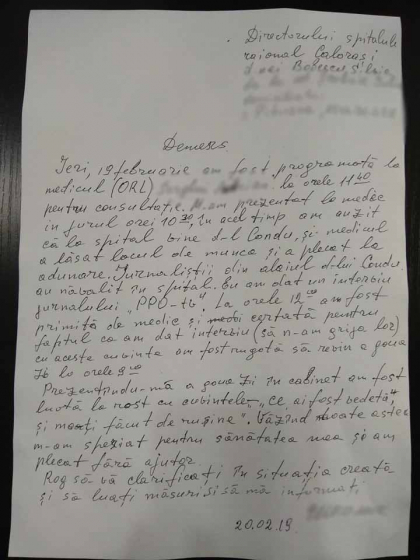 Directorului spitalului
raional Calarasi
d-nei Bobescu Silvia
Demers
Ieri, 19 februarie am fost programată la
medicul (ORL) la orele 11 40
pentru consultație. M-am prezentat la medic
in jurul orei 10 30. In acel timp am auzit
că la spital vine d-l Candu, și medicul
a lăsat locul de munca și a plecat la
adunare. Jurnaliștii din alaiul d-lui Candu
au năbălit în spital. Eu am dat un interviu
jurnalului „PRO-tb”. La orele 12 am fost
primită de medic și certată pentru
faptul ca am dat interviu (să n-am grija lor)
cu aceste cuvinte am fost rugată să revin a doua
zi la orele 9 00
Prezentîndu-mă a doua zi în cabinet am fost
luată la rost cu cuvintele „ce ai fost bedetă”,
și m-ați făcut de rușine”. Văzînd toate astea
m-am speriat pentru sănătatea mea și am
plecat fără ajutor.
Rog să vă clarificați în situația creată
și să luați măsuri și să mă informați
20.02.19